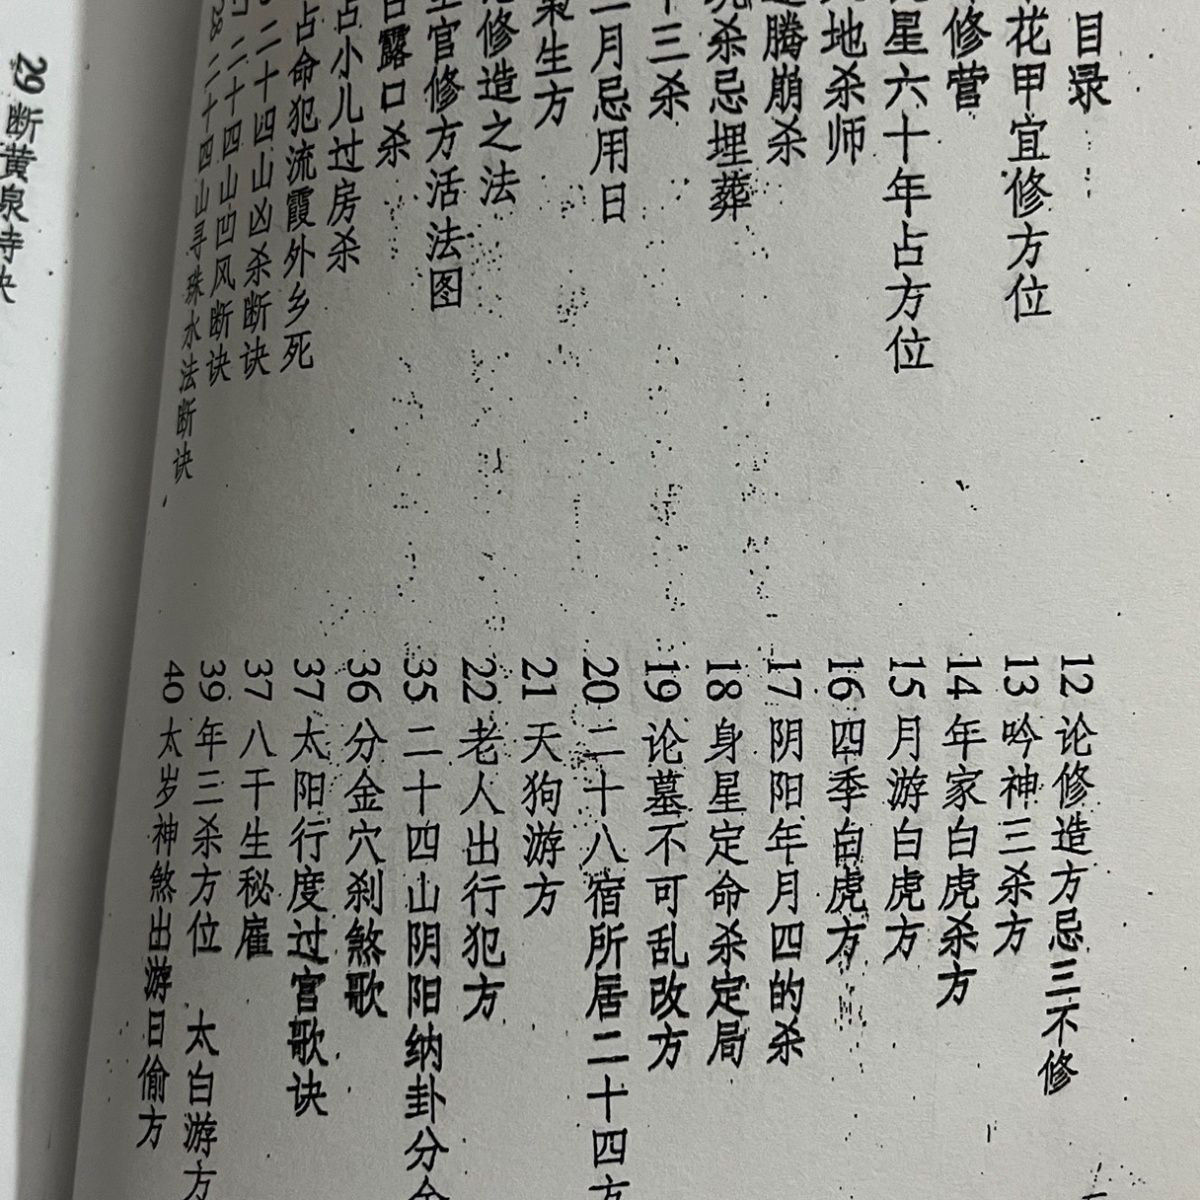 目录
花甲宜修方位
修营
星六十年占方位
地杀师
腾崩杀
杀忌埋葬
十三杀
二月忌用日
枭生方
修造之法
官修方活法图
白露口杀
占小儿过房杀
占命犯流霞外乡死
二十四山凶杀断诀
二十四山凹风断诀
28 二十四山寻珠水法断诀
12 论修造方忌三不修
13 吟神三杀方
14 年家白虎杀方
15 月游白虎方
16 四季白虎方
17 阴阳年月四的杀
18 身星定命杀定局
19 论墓不可乱改方
20 二十八宿所居二十四方
21 天狗游方
22 老人出行犯方
35 二十四山阴阳纳卦分金
36 分金穴刹煞歌
37 太阳行度过宫歌诀
37 八干生秘雇
39 年三杀方位 太白游方
40 太岁神煞出游日偷方
29 断黄泉寺诀